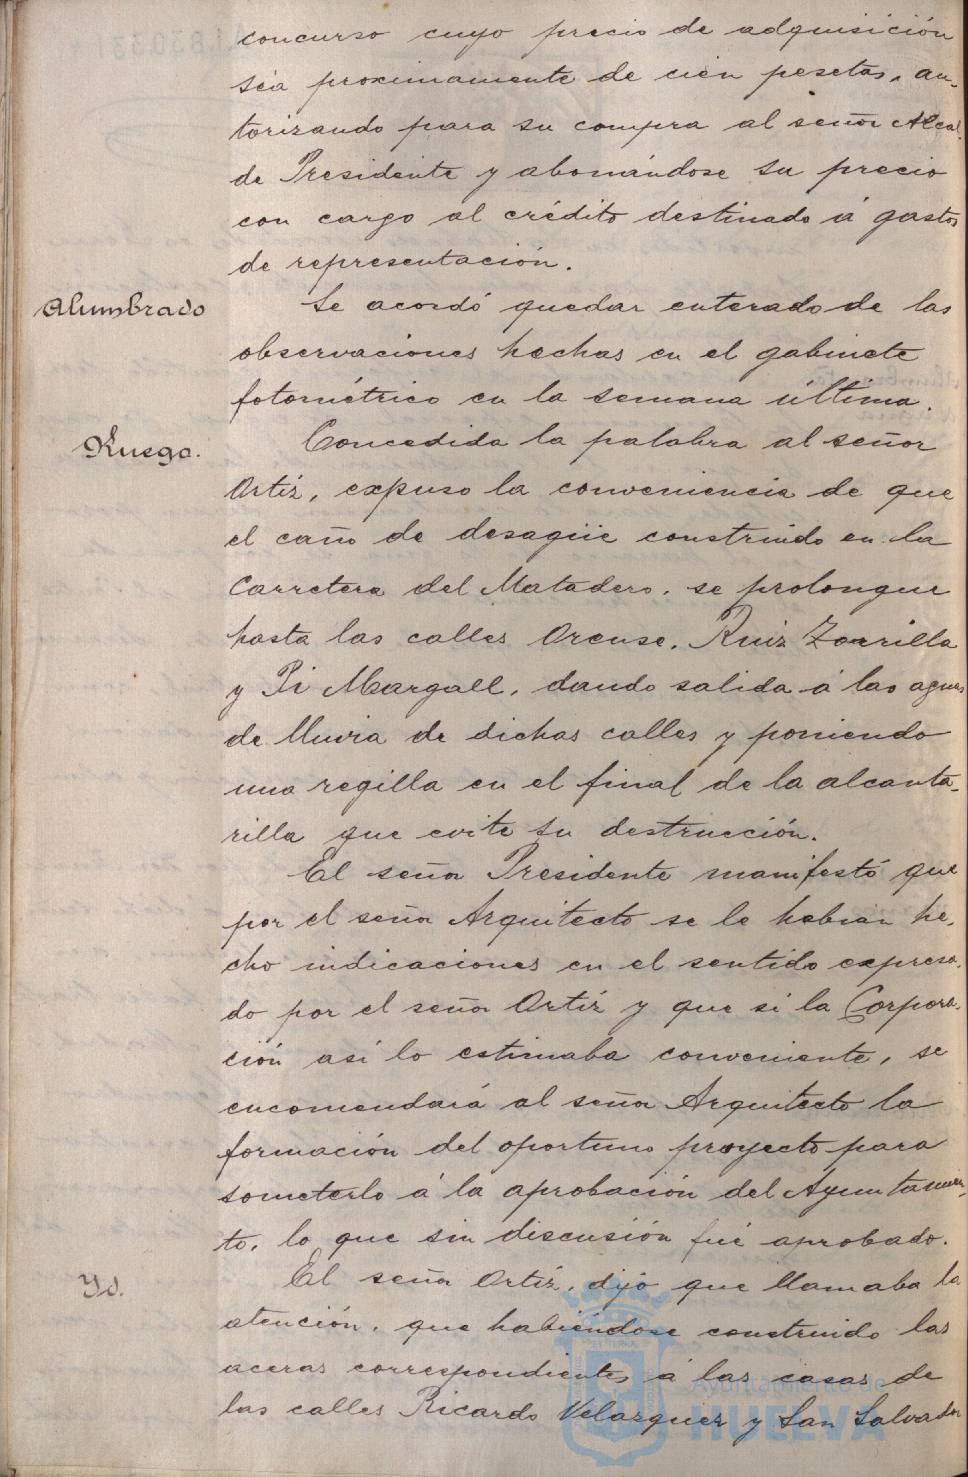 concurso cuyo precio de adquisición
sea proximamente de cien pesetas, au-
torizando para su compra al señor Alcal-
de Presidente y abonándose su precio
con cargo al crédito destinado á gastos
de representación.
Alumbrado
Se acordó quedar enterado de las
observaciones hechas en el gabinete
fotométrico en la semana última.
Ruego.
Concedida la palabra al señor
Ortiz, expuso la conveniencia de que
el caño de desagüe construido en la
Carretera del Matadero, se prolongue
hasta las calles Orense, Ruiz Zorrilla
y Pi Margall, dando salida á las aguas
de lluvia de dichas calles y poniendo
una regilla en el final de la alcanta-
rilla que evite su destrucción.
El señor Presidente manifestó que
por el señor Arquitecto se le habian he-
cho indicaciones en el sentido expresa-
do por el señor Ortiz y que si la Corpora-
ción así lo estimaba conveniente, se
encomendará al señor Arquitecto la
formación del oportuno proyecto para
someterlo á la aprobación del Ayuntamien-
to, lo que sin discusión fué aprobado.
Yd.
El señor Ortiz, dijo que llamaba la
atención, que habiéndose construido las
aceras correspondientes á las casas de
las calles Ricardo Velazquez y San Salvador
Ayuntamiento de
HUELVA